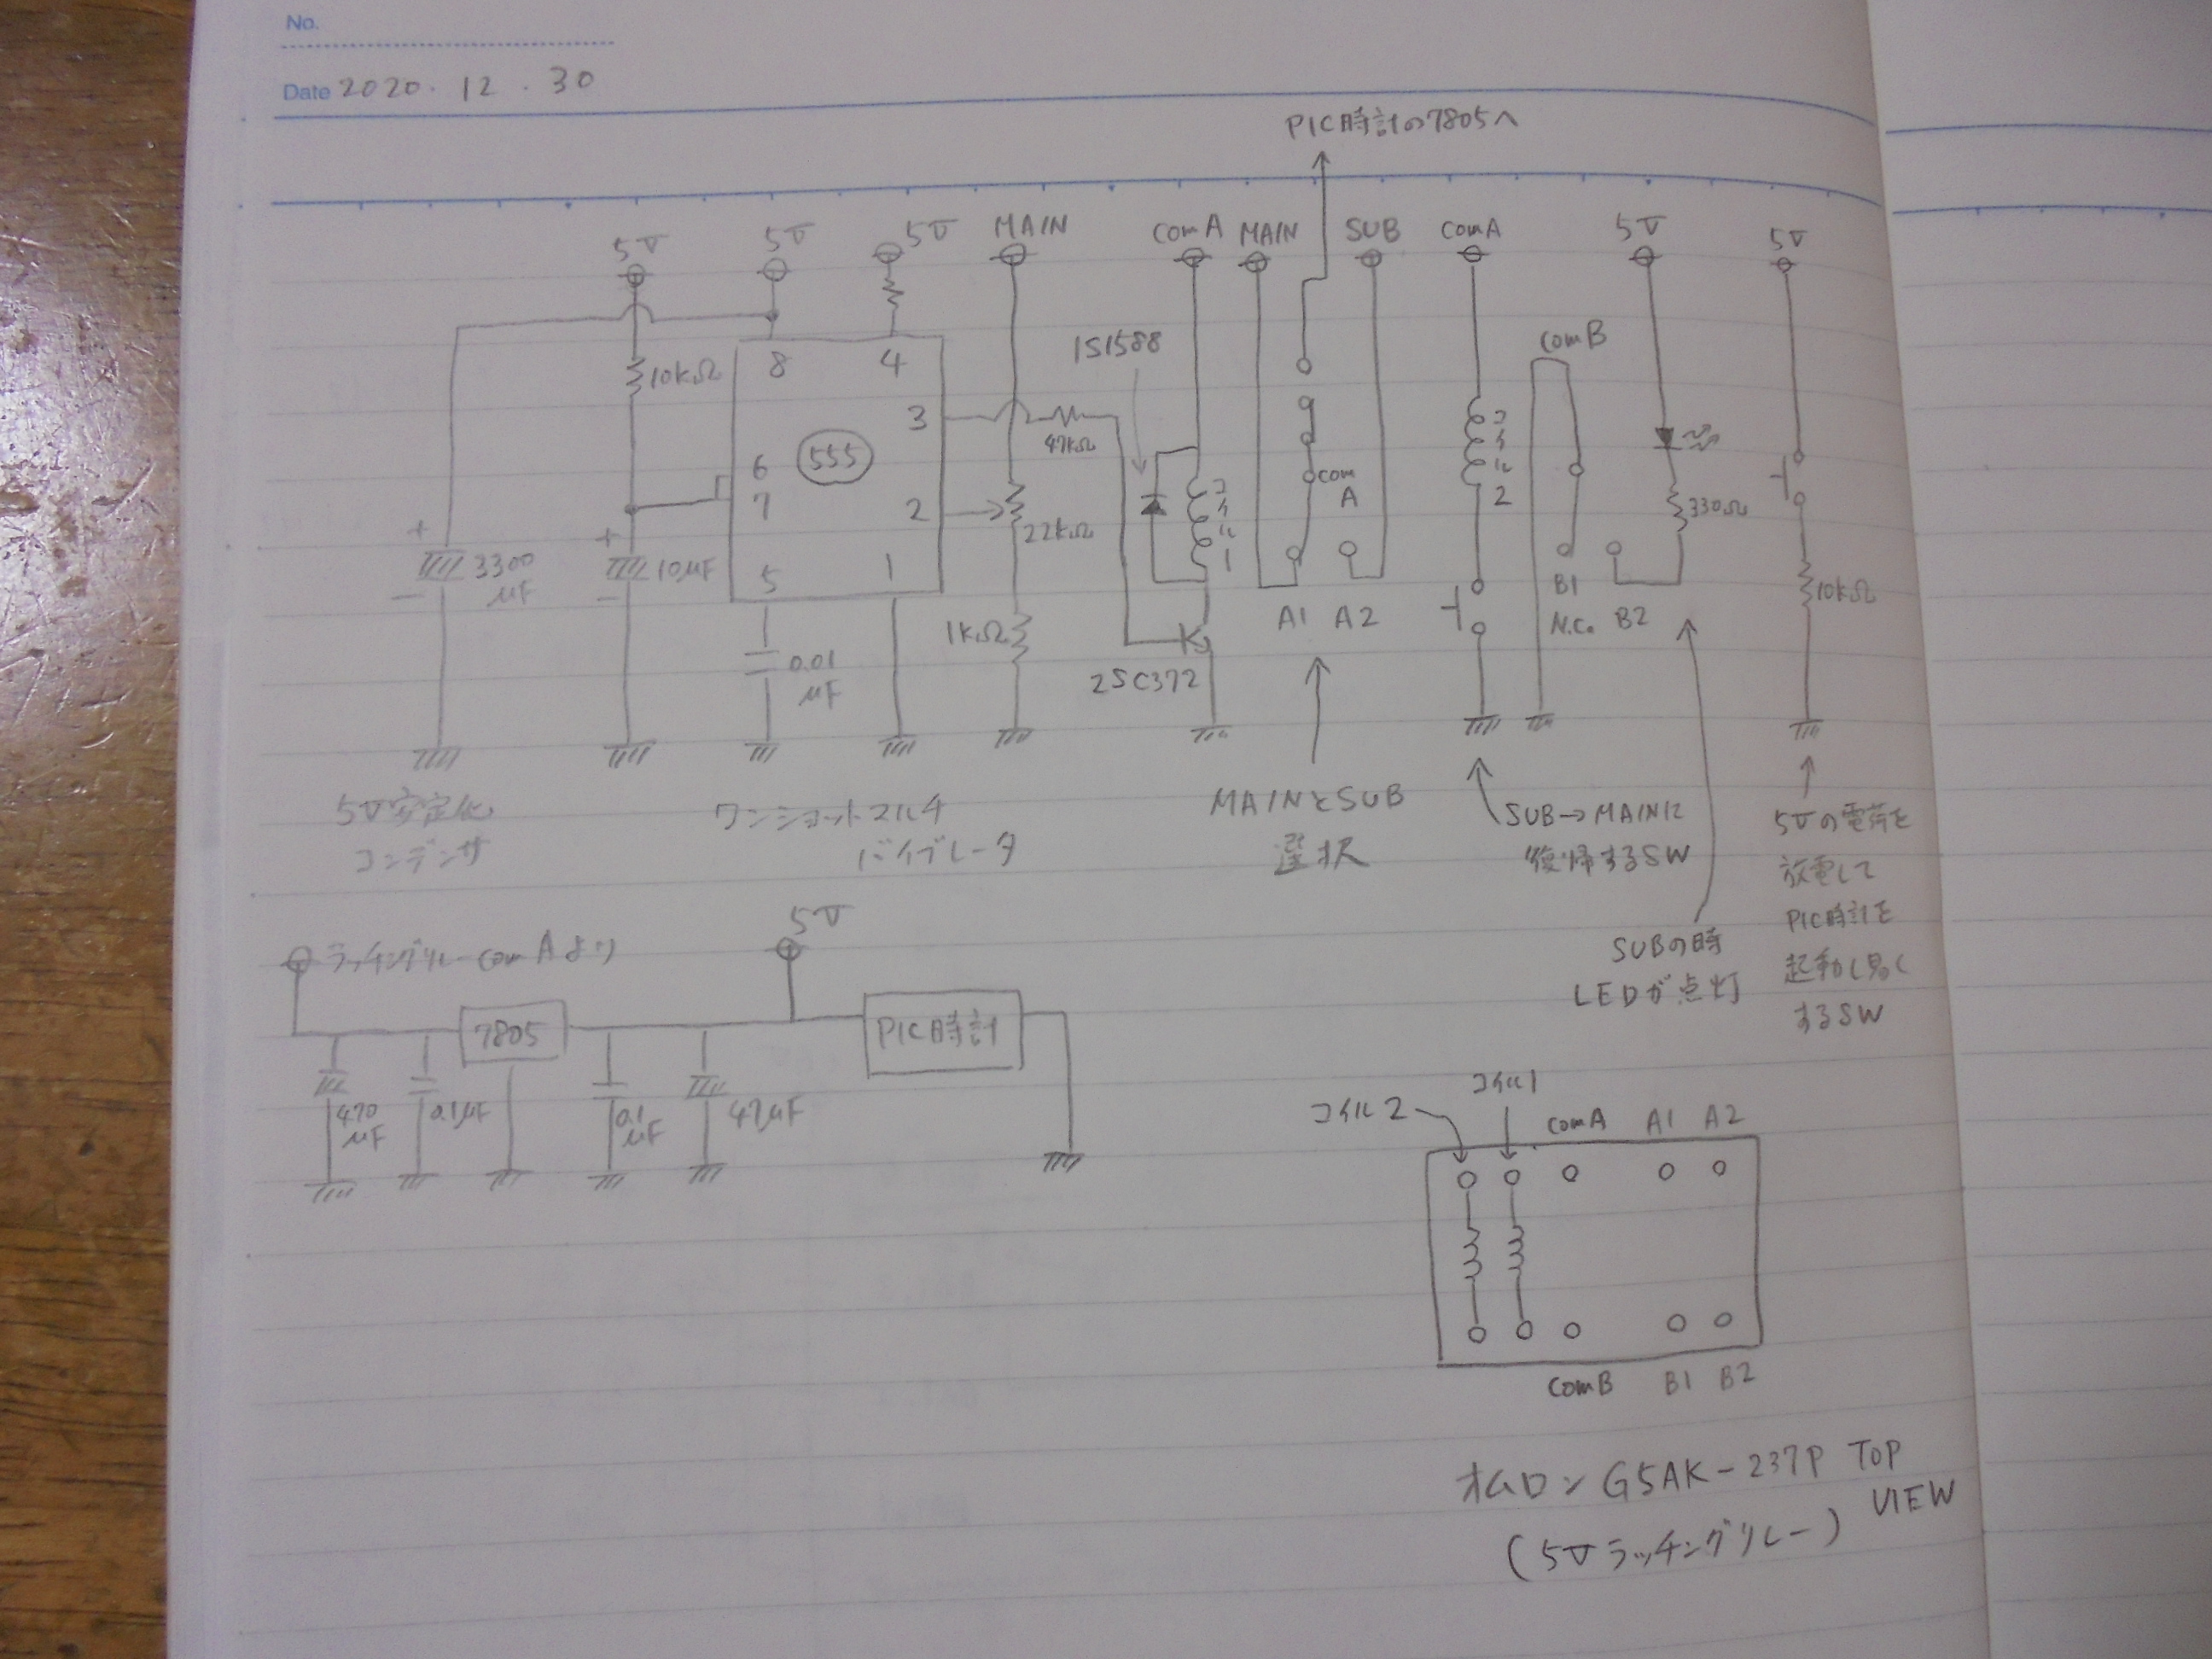 No.
Date 2020.12.30
PIC時計の7805へ
5V
5V
5V
MAIN
comA
MAIN
SUB
comA
5V
5V
10kΩ
8
4
3
6
7
555
2
5
1
47kΩ
1S1588
22kΩ
1kΩ
2SC372
コイル1
com
A
A1
A2
コイル2
comB
B1
N.C.
B2
330Ω
10kΩ
+
3300
μF
-
+
10μF
-
0.01
μF
5V安定化
コンデンサ
ワンショットマルチ
バイブレータ
MAINとSUB
選択
SUB→MAINに
復帰するSW
SUBの時
LEDが点灯
5Vの電荷を
放電して
PIC時計を
起動し易く
するSW
ラッチングリレーcomAより
5V
7805
PIC時計
470
μF
0.1μF
0.1
μF
47μF
コイル2
コイル1
comA
A1
A2
comB
B1
B2
オムロンG5AK-237P TOP
VIEW
(5Vラッチングリレー)